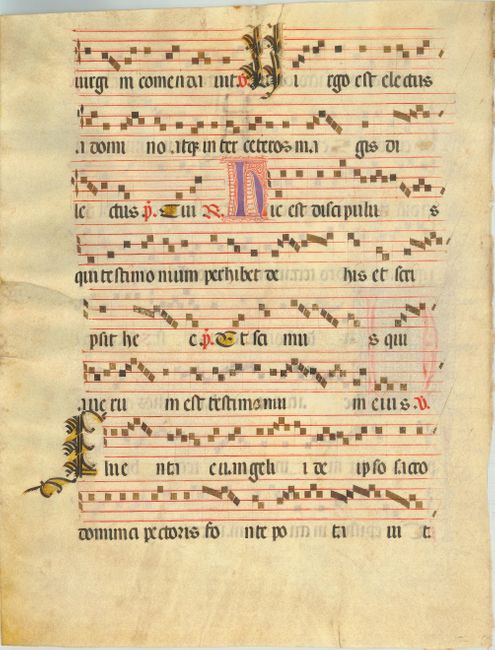 uirgi ni comenda uit. V. Vi rgo est electus
a domi no atq; inter ceteros ma gis di
le ctus. P. Cui R. Hic est discipulu s
qui testimonium perhibet de his et scri
psit he c. P. Et sci mu s qui
a ueru m est testimoniu m eius. V.
Flue nta euangeli i de ipso sacro
dominici pectoris fo nte po ta ui t.